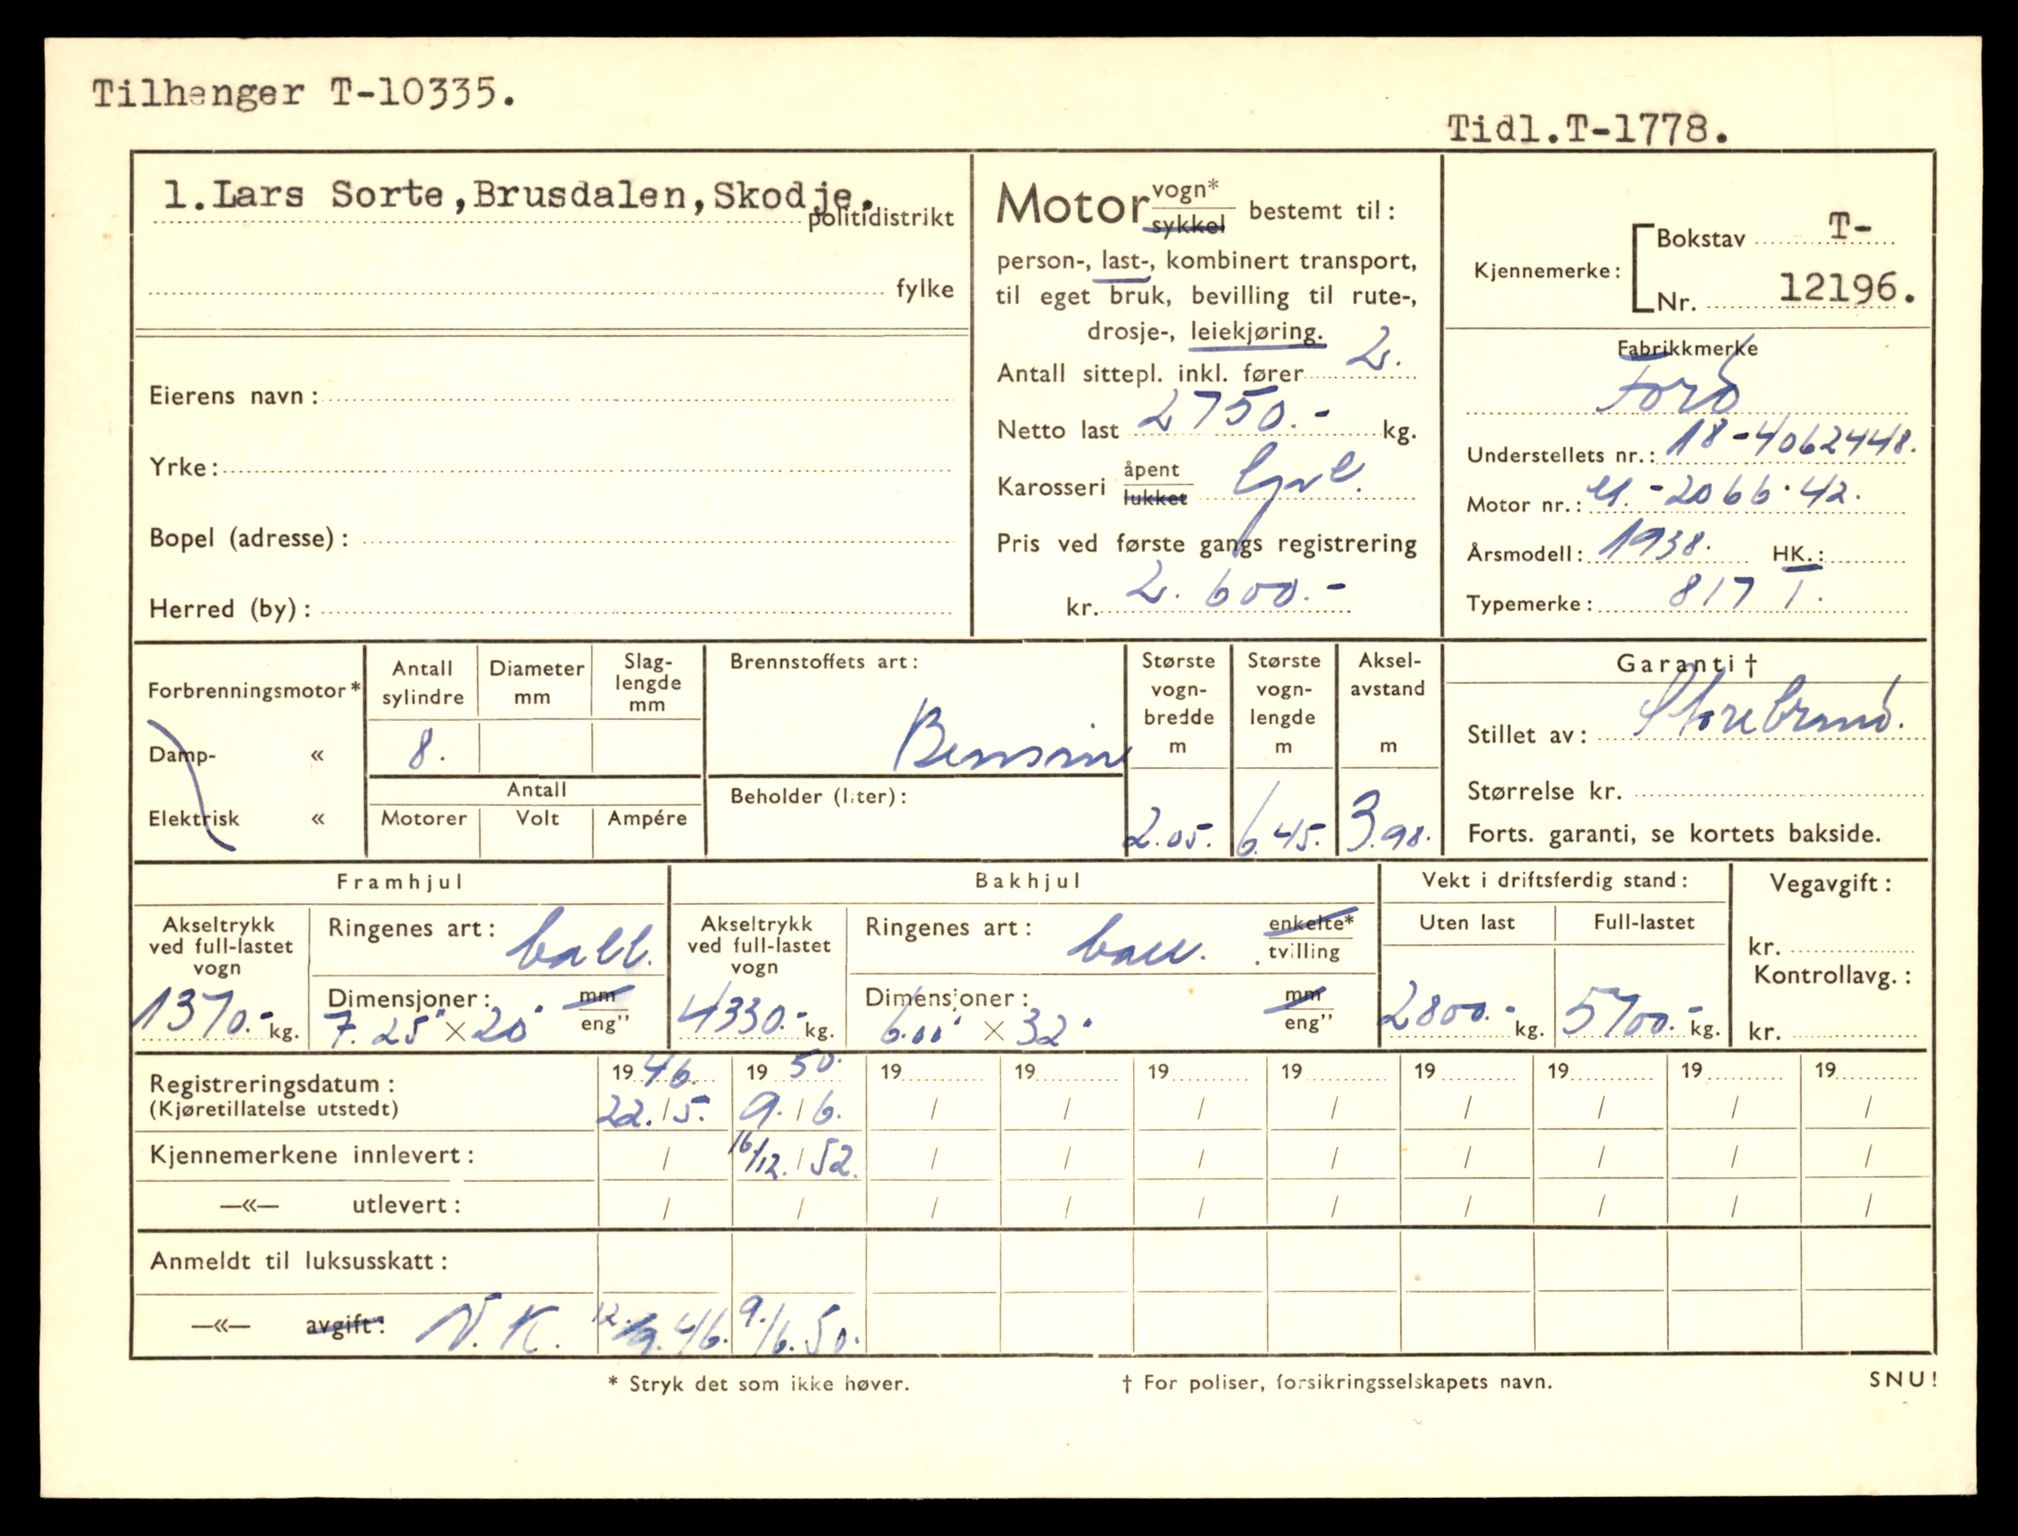 Tilhenger T-10335.
Tidl.T-1778.
1.Lars Sorte,Brusdalen,Skodje.
politidistrikt
fylke
Eierens navn:
Yrke:
Bopel (adresse):
Herred (by):
Motor vogn* sykkel bestemt til:
person-, last-, kombinert transport,
til eget bruk, bevilling til rute-,
drosje-, leiekjøring.
Antall sittepl. inkl. fører 2.
Netto last 2750.- kg.
Karosseri åpent lukket
Pris ved første gangs registrering
kr. 2.600.-
Kjennemerke: Bokstav T-
Nr. 12196.
Fabrikkmerke
Ford
Understellets nr.: 18-4062448.
Motor nr.: -2066.42.
Årsmodell: 1938. HK.:
Typemerke: 817 T.
Forbrenningsmotor*
Damp- «
Elektrisk «
Antall sylindre
8.
Diameter mm
Slag-lengde mm
Antall
Motorer Volt Ampére
Brennstoffets art:
Bensin
Beholder (liter):
Største vogn-bredde m
2.05.
Største vogn-lengde m
6.45.
Aksel-avstand m
3.98.
Garanti †
Stillet av: Storebrand.
Størrelse kr.
Forts. garanti, se kortets bakside.
Framhjul
Akseltrykk ved full-lastet vogn
1370.- kg.
Ringenes art: ball.
Dimensjoner: mm eng"
7.25" × 20"
Bakhjul
Akseltrykk ved full-lastet vogn
4330.- kg.
Ringenes art: ball. enkelte* tvilling
Dimensjoner: mm eng"
6.00" × 32"
Vekt i driftsferdig stand:
Uten last Full-lastet
2800.- kg. 5700.- kg.
Vegavgift:
kr.
Kontrollavg.:
kr.
Registreringsdatum: 1946. 1950. 19 19 19 19 19 19 19 19
(Kjøretillatelse utstedt) 22./5. 9./6. / / / / / / / /
Kjennemerkene innlevert: / 16/12./52. / / / / / / / /
—«— utlevert: / / / / / / / / / /
Anmeldt til luksusskatt:
—«— avgift: V.K. 12./9.46. 9./6.50.
* Stryk det som ikke høver.
† For poliser, forsikringsselskapets navn.
SNU!